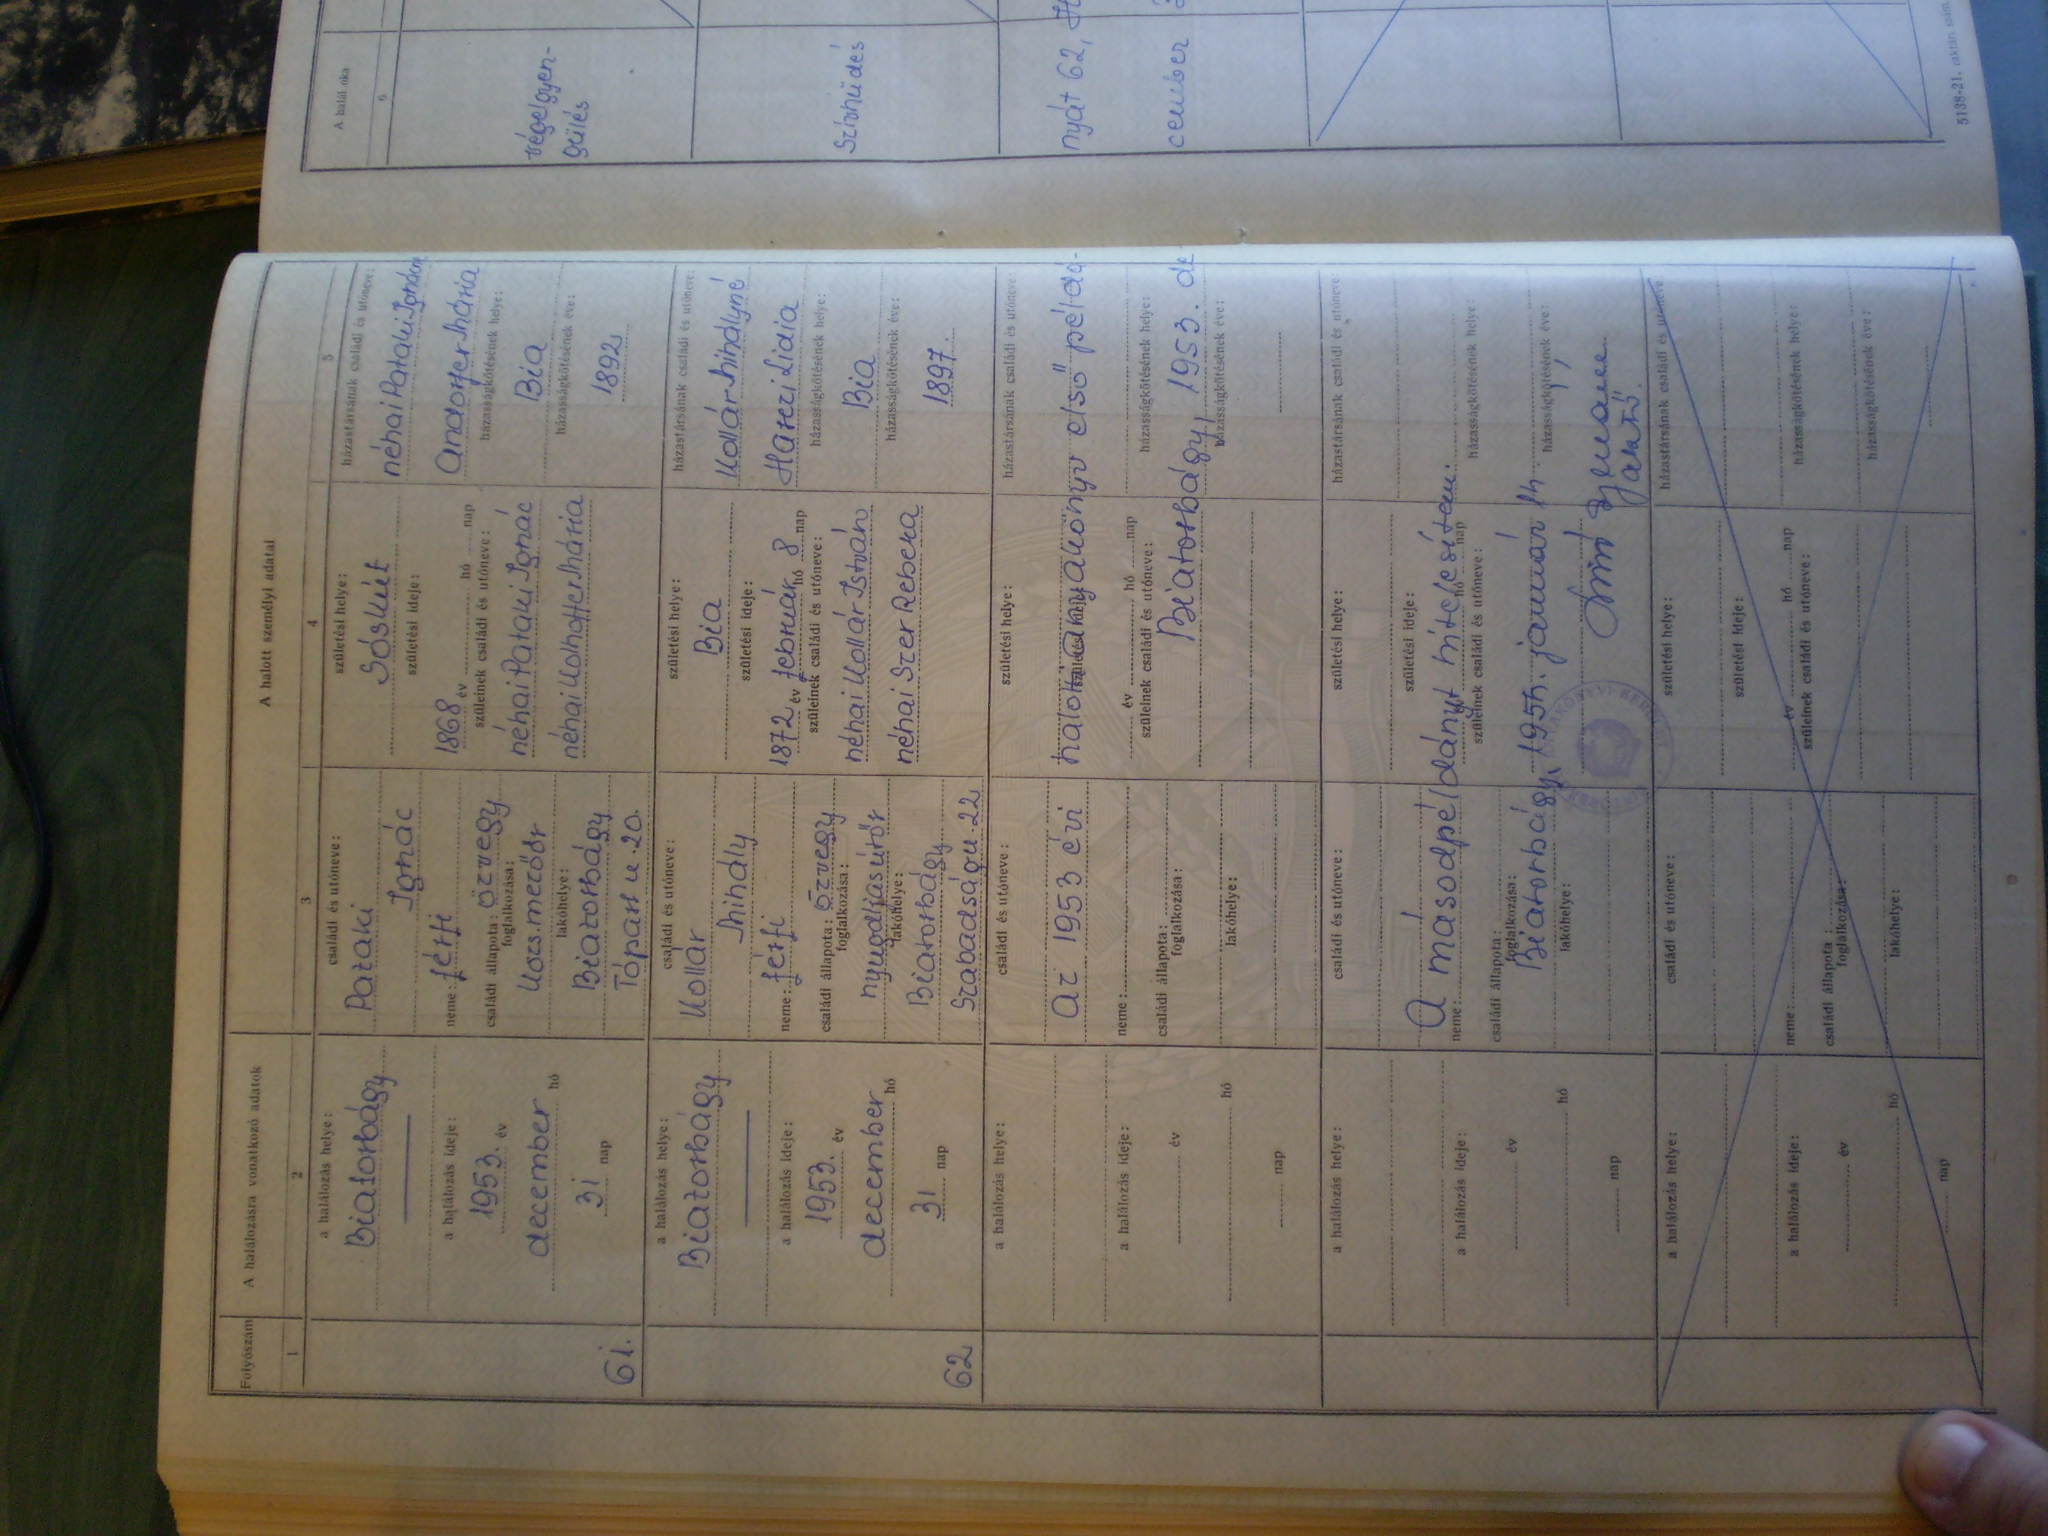 A halott személyi adatai
Folyószám
A halálozásra vonatkozó adatok
A halál oka
1
2
3
4
5
6
61.
a halálozás helye:
Biatorbágy
a halálozás ideje:
1953. év
december hó
31 nap
családi és utóneve:
Pataki
Ignác
neme: férfi
családi állapota: özvegy
foglalkozása:
lakóhelye:
Biatorbágy
születési helye:
Sóskút
születési ideje:
1868 év hó nap
szüleinek családi és utóneve:
néhai Pataki Ignác
házastársának családi és utóneve:
néhai Pataki Ignácné
házasságkötésének helye:
Bia
házasságkötésének éve:
1892
végelgyen-
gülés
62
a halálozás helye:
Biatorbágy
a halálozás ideje:
1953. év
december hó
31 nap
családi és utóneve:
Kollár
Mihály
neme: férfi
családi állapota: özvegy
foglalkozása:
nyugdíjas útőr
lakóhelye:
Biatorbágy
Szabadság u. 22
születési helye:
Bia
születési ideje:
1872 év február hó 8 nap
szüleinek családi és utóneve:
néhai Kollár István
néhai Szer Rebeka
házastársának családi és utóneve:
Kollár Mihályné
Lidia
házasságkötésének helye:
Bia
házasságkötésének éve:
1897.
Szívhüdés
a halálozás helye:
a halálozás ideje:
év
hó
nap
családi és utóneve:
neme:
családi állapota:
foglalkozása:
lakóhelye:
születési helye:
születési ideje:
év hó nap
szüleinek családi és utóneve:
házastársának családi és utóneve:
házasságkötésének helye:
házasságkötésének éve:
Az 1953 évi halotti anyakönyv első példá-
nyát 62,
Biatorbágy, 1953. de
cember
a halálozás helye:
a halálozás ideje:
év
hó
nap
családi és utóneve:
neme:
családi állapota:
foglalkozása:
lakóhelye:
születési helye:
születési ideje:
hó nap
szüleinek családi és utóneve:
házastársának családi és utóneve:
házasságkötésének helye:
házasságkötésének éve:
A másodpéldányt hitelesítem.
Biatorbágy, 1954. január 14.
a halálozás helye:
a halálozás ideje:
év
hó
nap
családi és utóneve:
neme:
családi állapota:
foglalkozása:
lakóhelye:
születési helye:
születési ideje:
év hó nap
szüleinek családi és utóneve:
házastársának családi és utóneve:
házasságkötésének helye:
házasságkötésének éve:
5138-21. raktári szám.